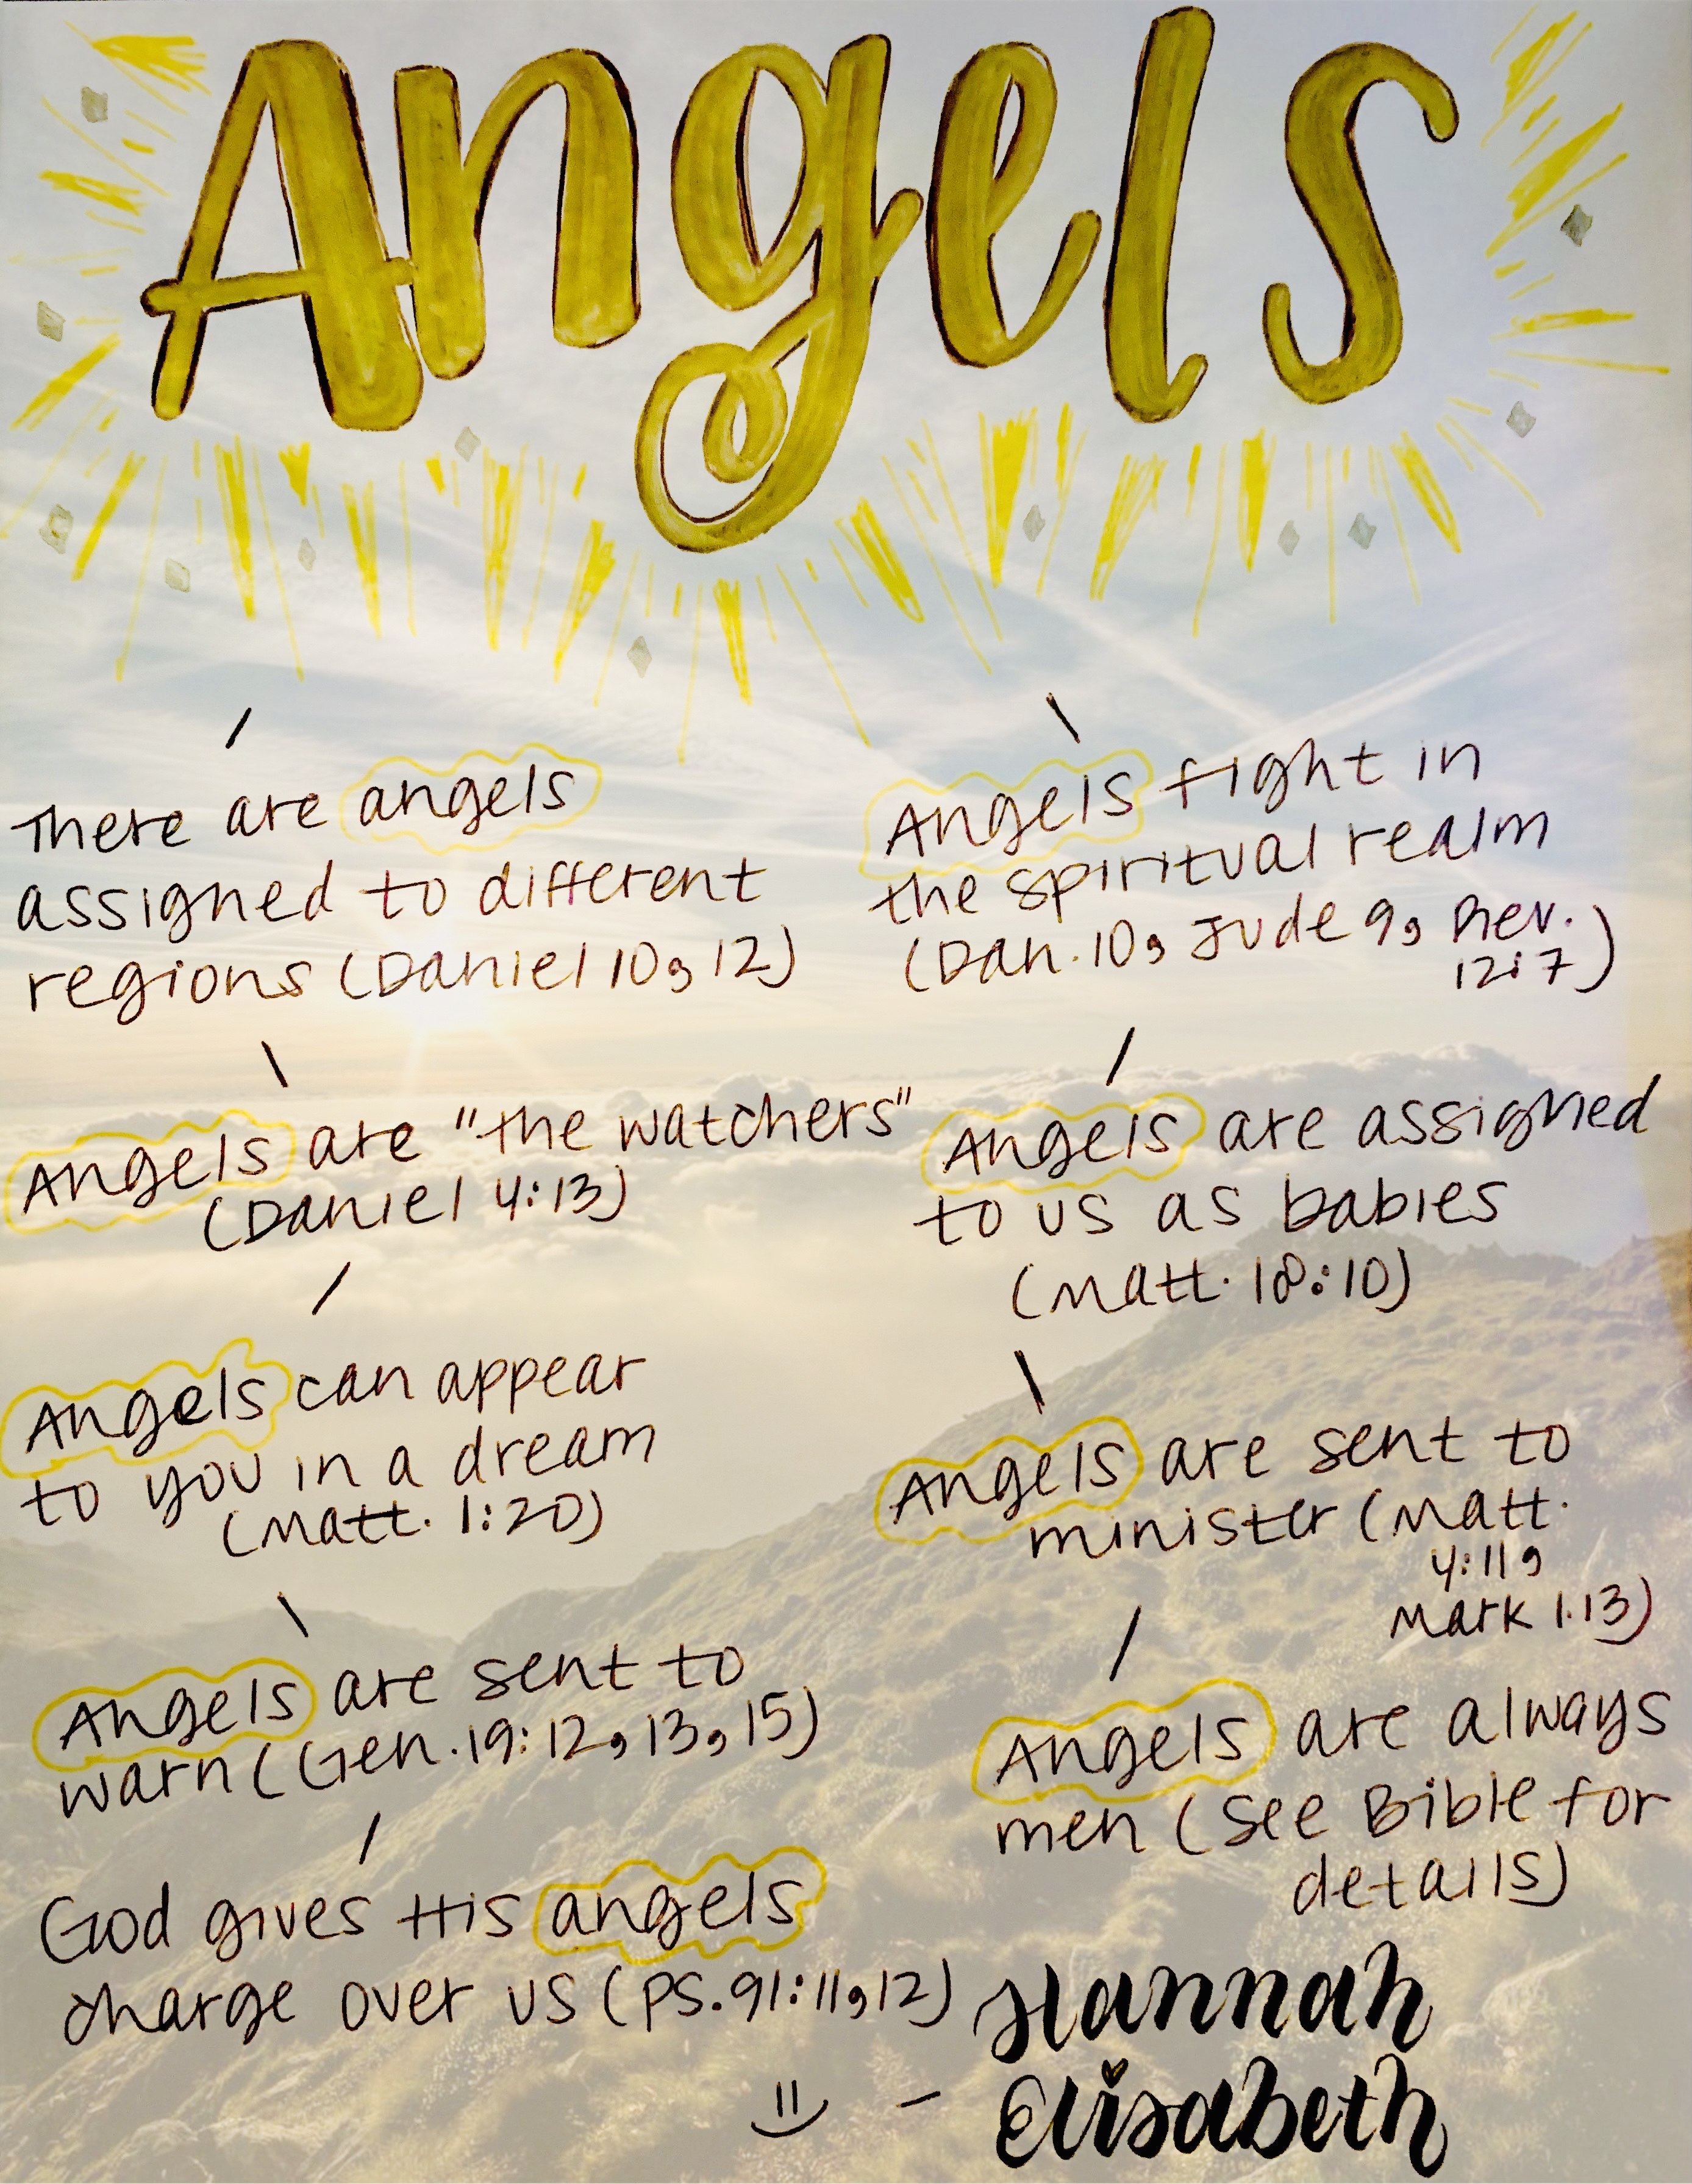 Angels
There are angels
assigned to different
regions (Daniel 10, 12)
Angels are "the watchers"
(Daniel 4:13)
Angels can appear
to you in a dream
(Matt. 1:20)
Angels are sent to
warn (Gen. 19:12, 13, 15)
God gives His angels
charge over us (PS. 91:11, 12)
Angels fight in
the spiritual realm
(Dan. 10, Jude 9, Rev.
12:7)
Angels are assigned
to us as babies
(Matt. 18:10)
Angels are sent to
minister (Matt.
4:11,
Mark 1.13)
Angels are always
men (see Bible for
details)
- Hannah
Elisabeth